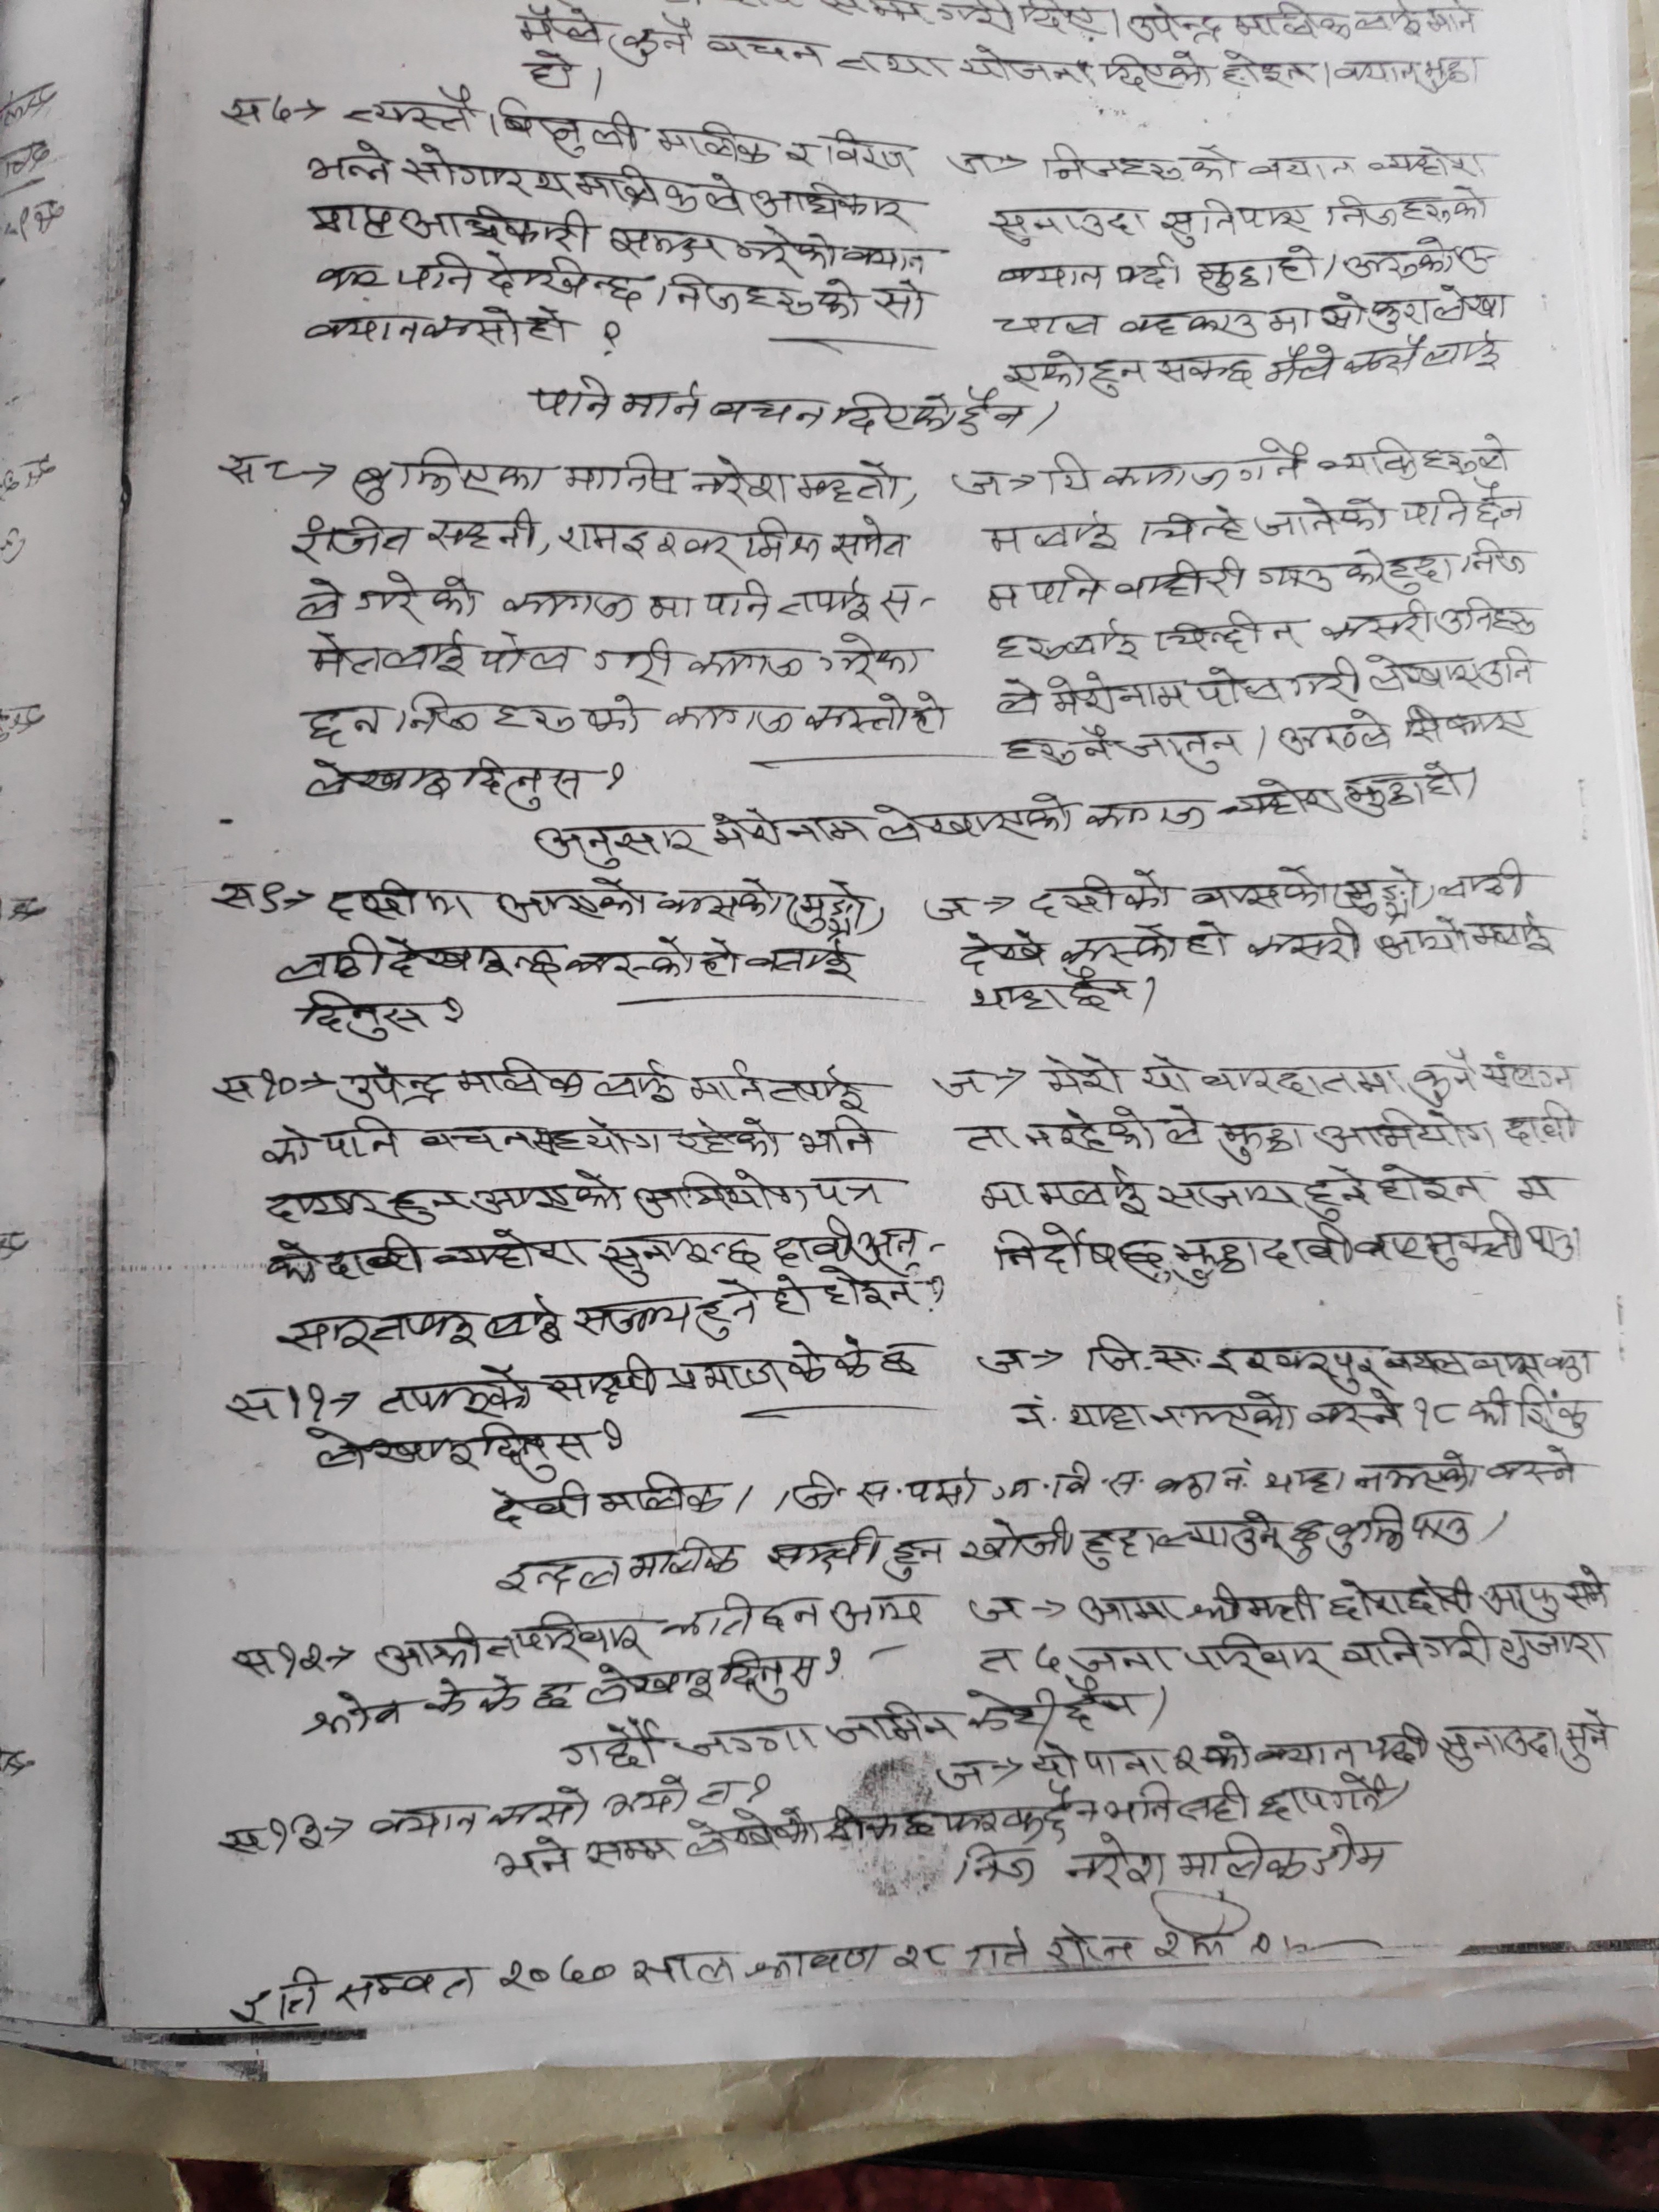 गरी दिए। उपेन्द्र मालिकलाई मार्न
मैले कुनै वचन तथा योजना दिएको होइन। वयान झुठा
हो।
स७→ त्यस्तै बिजुली मालिक र विरज
भन्ने सोगारथ मालिकले अधिकार
प्राप्त अधिकारी समक्ष गरेको वयान
पनि देखिन्छ निजहरुको सो
वयान कसो हो ?
ज→ निजहरुको वयान व्यहोरा
सुनाउदा सुनि पाए निजहरुको
वयान झुठा हो। अरुको उ
लेखा
एको हुन सक्छ मैले कसैलाई
पनि मार्न वचन दिएको छैन।
स८→ बुझिएका मानिस नरेश महतो,
रंजित सहनी, रामइश्वर समेत
ले गरेको कागजमा पनि तपाई स-
मेतलाई पोल गरी कागज गरेका
छन निजहरुको कागज कस्तो हो
लेखाइदिनुस ?
ज→ यि कागज गर्ने व्यक्तिहरुले
मलाई चिन्हे जानेको पनि छैन
म पनि बाहीरी गाउको हुदा निज
हरुलाई चिन्दीन कसरी उनिहरु
ले मेरो नाम पोल गरी लेखाए उनि
हरु नै जानुन। अरुले सिकाए
अनुसार मेरो नाम लेखाएको कागज व्यहोरा झुठा हो।
स९→ दसीमा आएको बासको (मुङ्ग्रो)
लाठी देखाइन्छ कस्को हो बताई
दिनुस ?
ज→ दसीको बासको (मुङ्ग्रो) लाठी
देखे कस्को हो कसरी आयो मलाई
थाहा छैन।
स१०→ उपेन्द्र मालिकलाई मार्न तपाई
को पनि वचन सहयोग रहेको भनि
दायर हुन आएको अभियोग पत्र
को दावी व्यहोरा सुनाइन्छ दावी अनु-
सार तपाइलाई सजाय हुने हो होइन ?
ज→ मेरो यो वारदातमा कुनै संलग्न
ता नरहेकोले झुठा अभियोग दावी
मा मलाई सजाय हुने होइन म
निर्दोष छु झुठा दावीबाट मुक्ती पाउ।
स११→ तपाइको साक्षी प्रमाण के के छ
लेखाइदिनुस ?
ज→ जि. स. इश्वरपुर वडा
नं. थाहा नभएको बस्ने १८ की
देवी मालिक। जि. स. गा. वि. स. वडा नं. थाहा नभएको बस्ने
इन्द्रल मालिक साक्षी हुन खोजी हुदा ल्याउने छु बुझि पाउ।
स१२→ आश्रीत परिवार कति छन आय
श्रोत के के छ लेखाइदिनुस ?
ज→ आमा श्रीमती छोरा छोरी आफु समे
त ७ जना परिवार गरी गुजारा
गर्छौ जग्गा जमिन केही छैन।
स१३→ वयान कसो भयो त ?
ज→ यो पाना २ को वयान पढी सुनाउदा सुने
भने सम्म लेखेको ठीक छ फरक छैन भनि सही छाप गर्ने
निज नरेश मालिक डोम
इति सम्वत २०७० साल श्रावण २८ गते रोज २